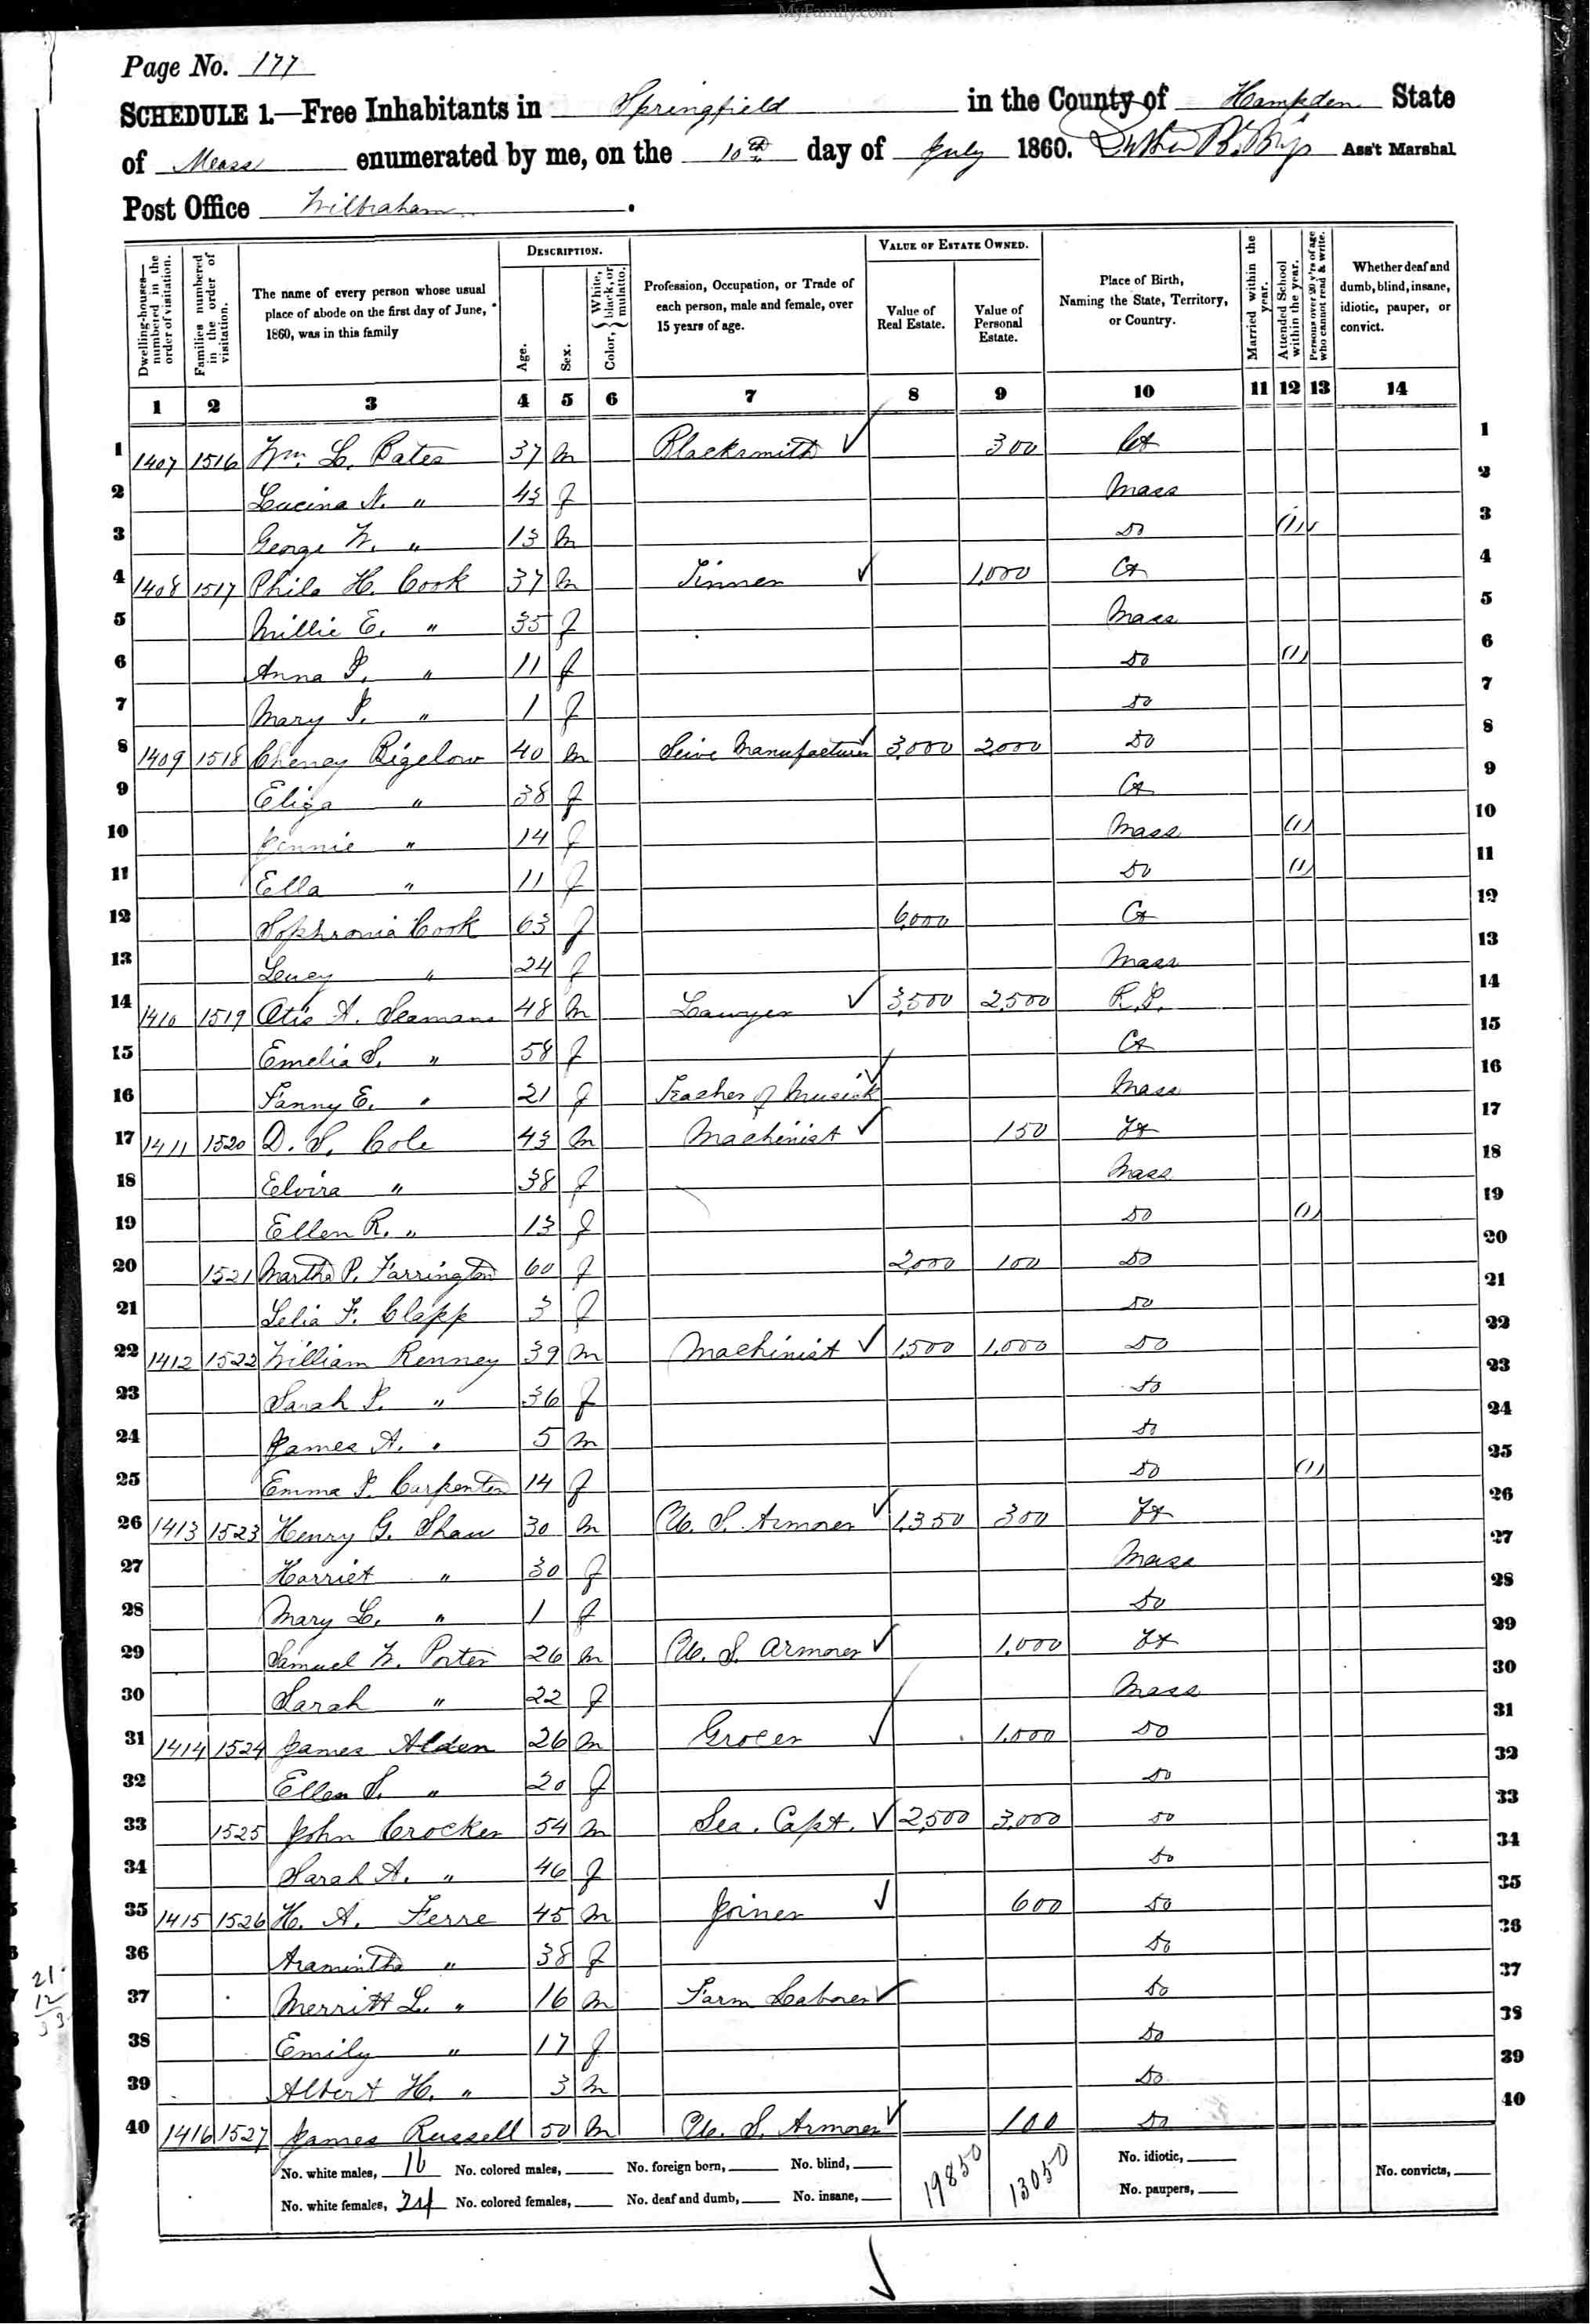 MyFamily.com
Page No. 177
SCHEDULE 1.—Free Inhabitants in Springfield in the County of Hampden State
of Mass enumerated by me, on the 10th day of July 1860. Ass't Marshal
Post Office Wilbraham.
Dwelling-houses—numbered in the order of visitation. Families numbered in the order of visitation. The name of every person whose usual place of abode on the first day of June, 1860, was in this family DESCRIPTION. Age. Sex. Color, { White, black, or mulatto. Profession, Occupation, or Trade of each person, male and female, over 15 years of age. VALUE OF ESTATE OWNED. Value of Real Estate. Value of Personal Estate. Place of Birth, Naming the State, Territory, or Country. Married within the year. Attended School within the year. Persons over 20 y'rs of age who cannot read & write. Whether deaf and dumb, blind, insane, idiotic, pauper, or convict.
1 2 3 4 5 6 7 8 9 10 11 12 13 14
1 1407 1516 Wm. L. Bates 37 m Blacksmith ✓ 300 Ct 1
2 Lucina N. " 43 f Mass 2
3 George W. " 13 m Do (1) 3
4 1408 1517 Philo H. Cook 37 m Tinner ✓ 1,000 Ct 4
5 Millie E. " 35 f Mass 5
6 Anna P. " 11 f Do (1) 6
7 Mary P. " 1 f Do 7
8 1409 1518 Cheney Bigelow 40 m Seive Manufacturer ✓ 3,000 2000 Do 8
9 Eliza " 38 f Ct 9
10 Jennie " 14 f Mass (1) 10
11 Ella " 11 f Do (1) 11
12 Sophronia Cook 63 f 6,000 Ct 12
13 Lucy " 24 f Mass 13
14 1410 1519 Otis A. Seamans 48 m Lawyer ✓ 3,500 2,500 R.I. 14
15 Emelia S. " 58 f Ct 15
16 Fanny E. " 21 f Teacher of Musick ✓ Mass 16
17 1411 1520 D. S. Cole 43 m Machinist ✓ 150 Vt 17
18 Elvira " 38 f Mass 18
19 Ellen R. " 13 f Do (1) 19
20 1521 Martha P. Farrington 60 f 2,000 100 Do 20
21 Lelia F. Clapp 3 f Do 21
22 1412 1522 William Renney 39 m Machinist ✓ 1,500 1,000 Do 22
23 Sarah P. " 36 f Do 23
24 James A. " 5 m Do 24
25 Emma P. Carpenter 14 f Do (1) 25
26 1413 1523 Henry G. Shaw 30 m U. S. Armorer ✓ 1,350 300 Vt 26
27 Harriet " 30 f Mass 27
28 Mary L. " 1 f Do 28
29 Samuel W. Porter 26 m U. S. Armorer ✓ 1,000 Vt 29
30 Sarah " 22 f Mass 30
31 1414 1524 James Alden 26 m Grocer ✓ 1,000 Do 31
32 Ellen S. " 20 f Do 32
33 1525 John Crocker 54 m Sea. Capt. ✓ 2,500 3,000 Do 33
34 Sarah A. " 46 f Do 34
35 1415 1526 H. A. Ferre 45 m Joiner ✓ 600 Do 35
36 Aramintha " 38 f Do 36
37 Merritt L. " 16 m Farm Laborer ✓ Do 37
38 Emily " 17 f Do 38
39 Albert H. " 3 m Do 39
40 1416 1527 James Russell 50 m U. S. Armorer ✓ 100 Do 40
21
12
No. white males, 16 No. colored males, No. foreign born, No. blind, 19850 13050 No. idiotic, No. convicts,
No. white females, 24 No. colored females, No. deaf and dumb, No. insane, No. paupers,